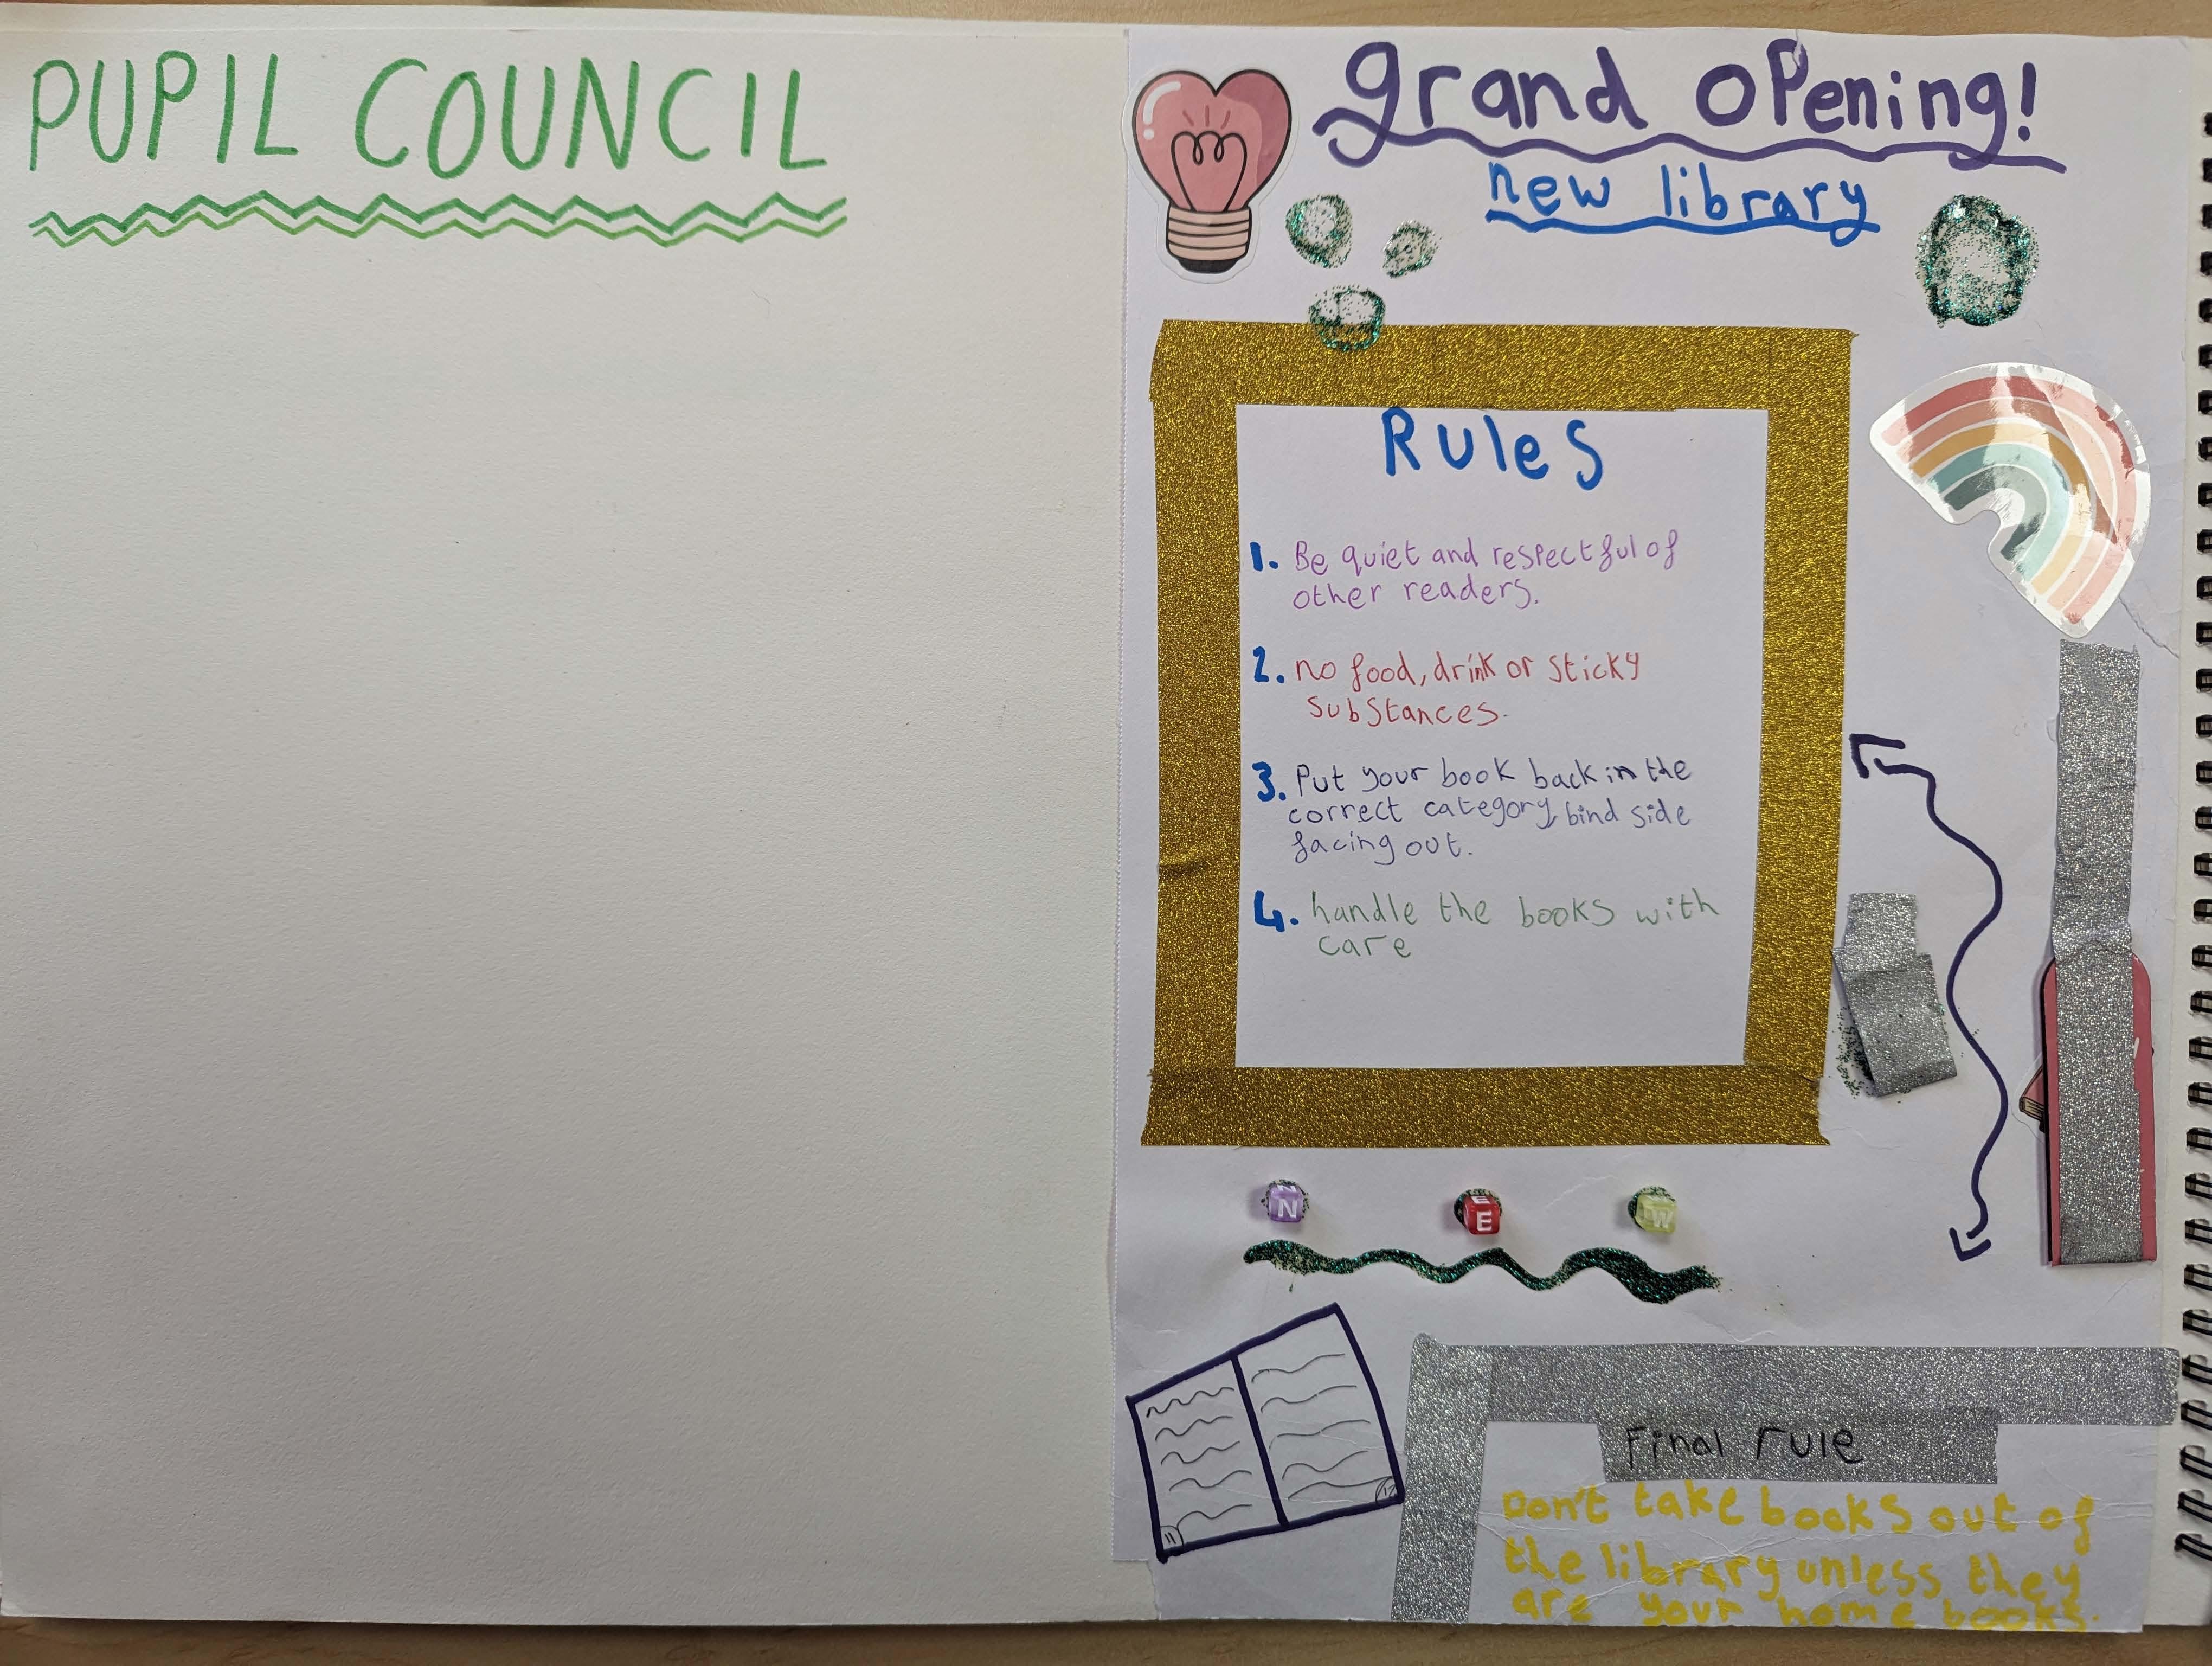 PUPIL COUNCIL
grand opening!
new library
Rules
1. Be quiet and respectful of
other readers.
2. no food, drink or sticky
substances.
3. Put your book back in the
correct category, bind side
facing out.
4. handle the books with
care
N E W
11
12
Final rule
Don't take books out of
the library unless they
are your home books.